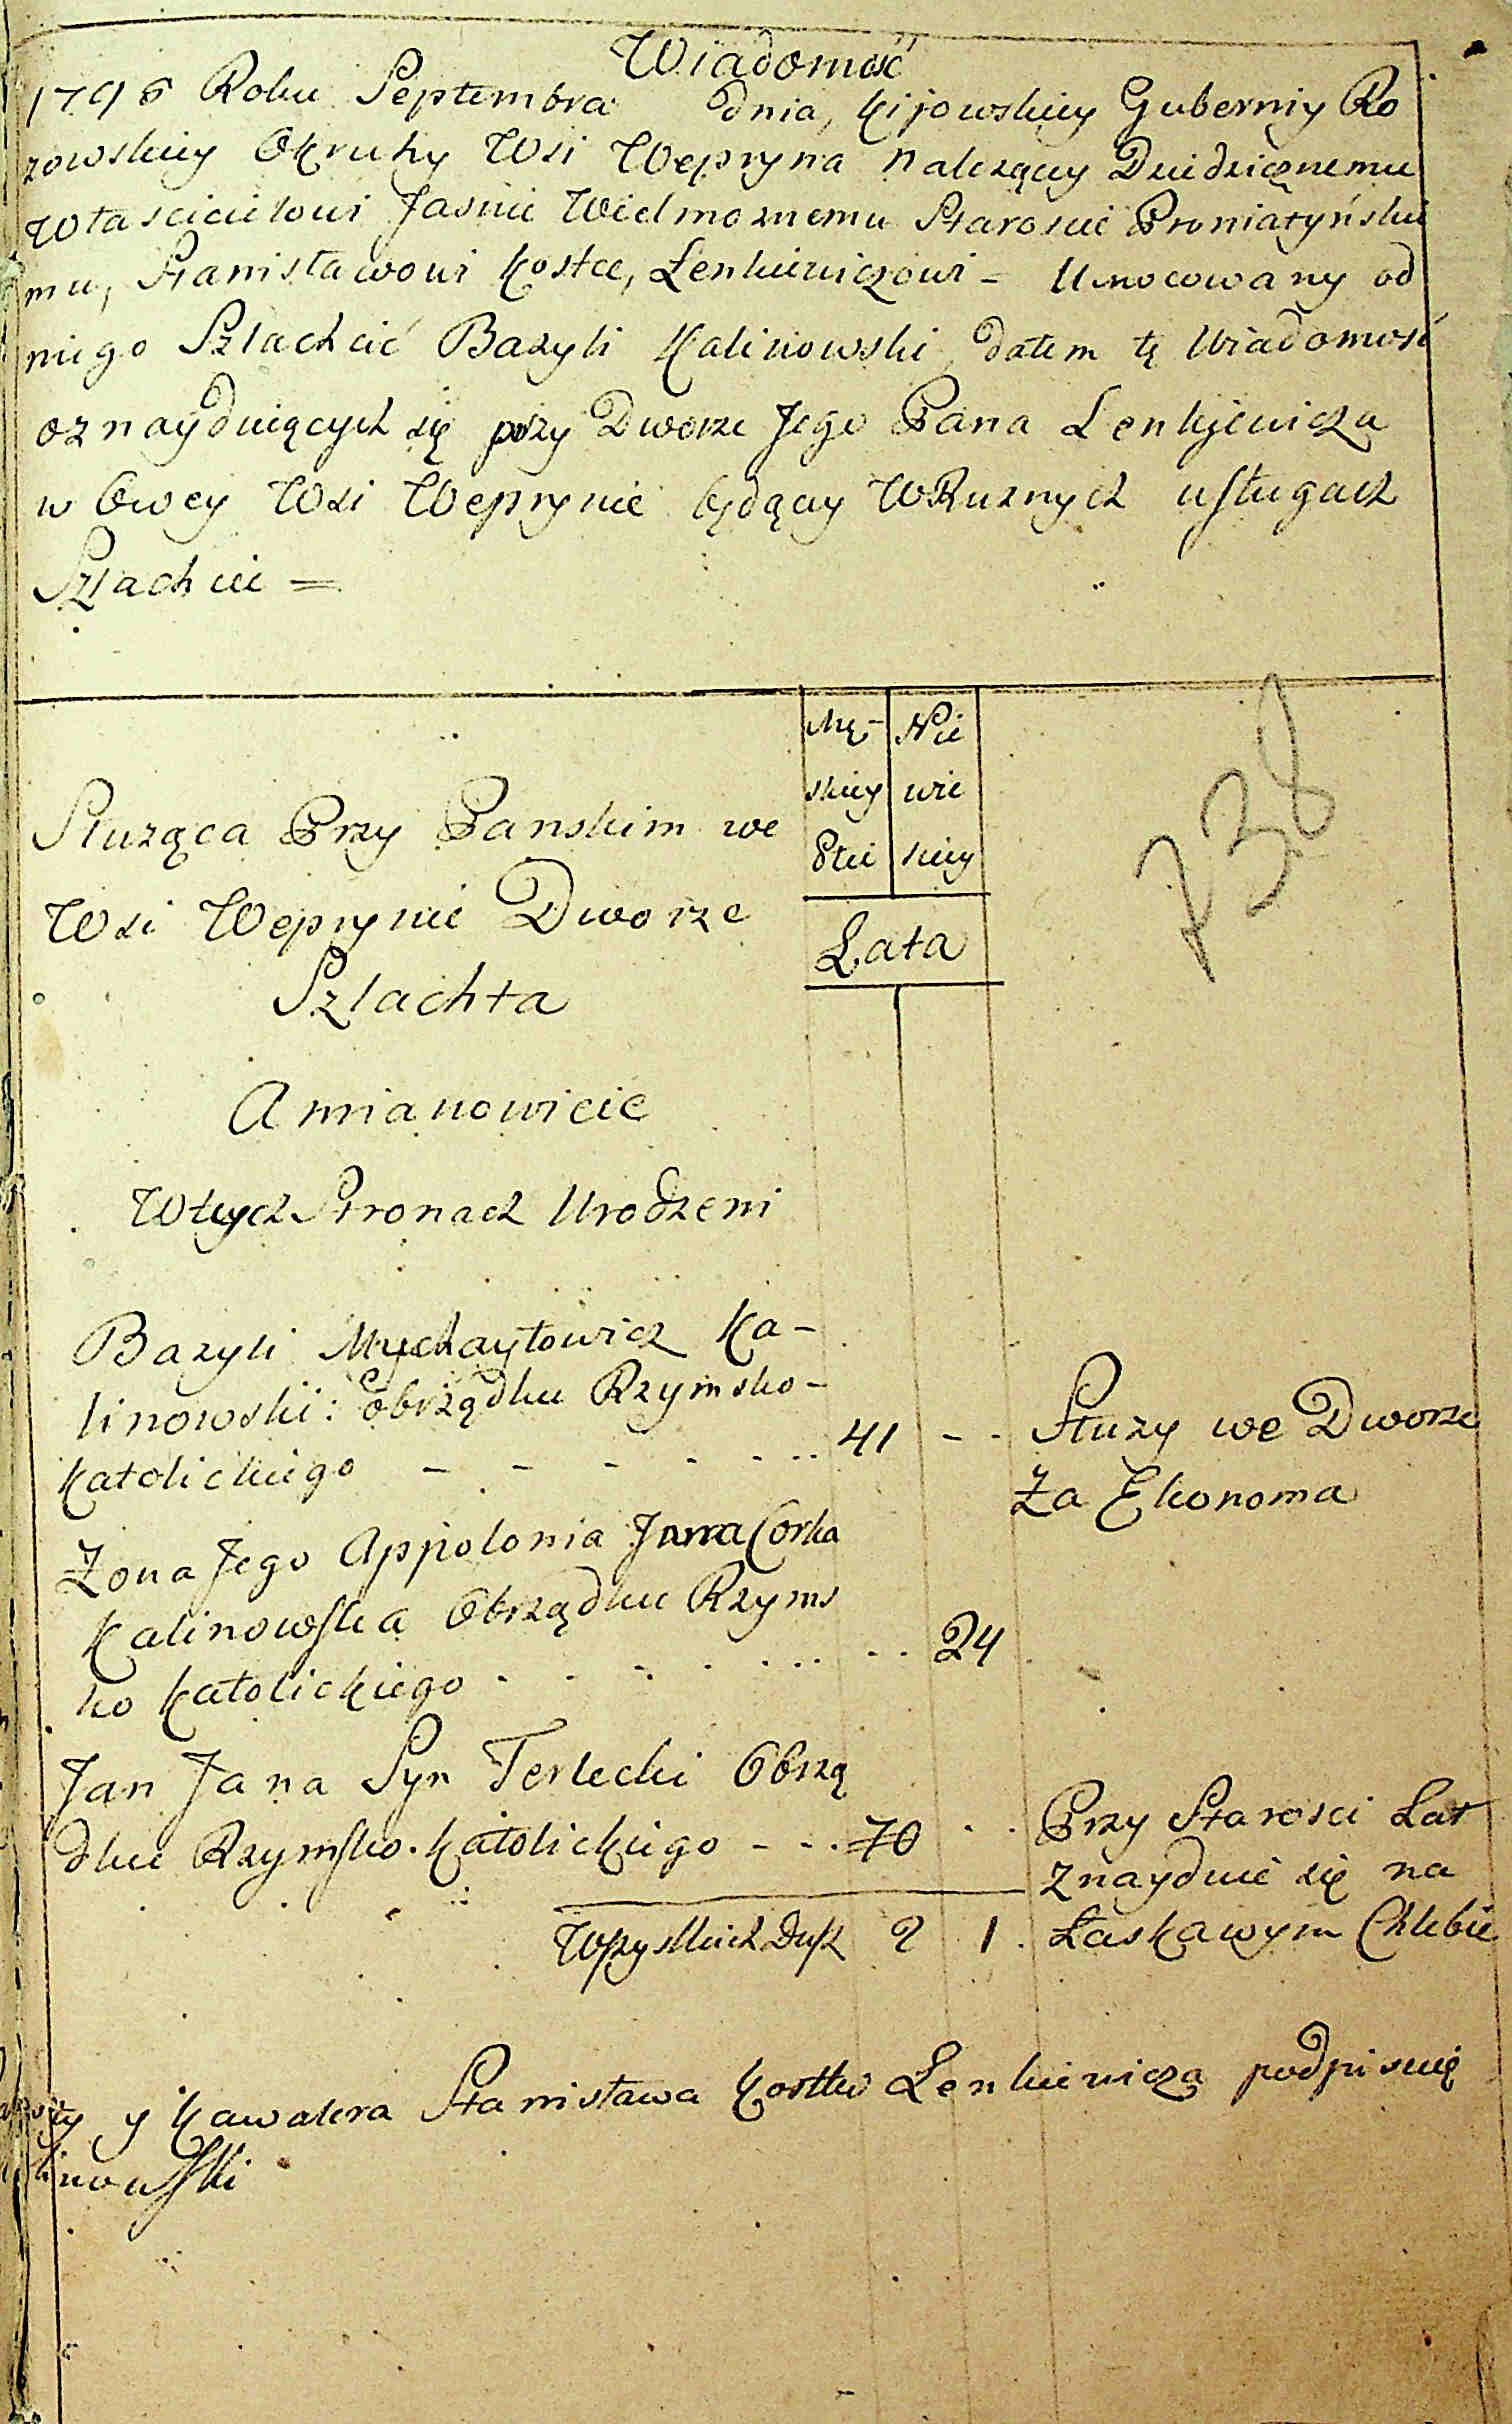 Wiadomość
1795 Roku Septembra dnia, Kijowskiey Guberniy Ro
zowskiey Okruhy Wsi Wepryna nalezącey Dziedzicznemu
Własciciełowi Jasnie Wielmoznemu Staroscie Proniatyńskie
mu, Stanisławowi Kostce, Lenkiewiczowi - Umocowany od
niego Szlachcić Bazyli Kalinowski dałem tę Wiadomość
oznayduiących się przy Dworze Jego Pana Lenkiewicza
w Owey WsiWeprynie będący WRuznych usługach
Szlachcie =
Męs- Nie
skiey wie
Płci sciey
Łata
738
Słuząca Przy Panskim we
Wsi Weprynie Dworze
Szlachta
Amianowicie
Wtych Stronach Urodzeni
Bazyli Mychayłowicz Ka-
linowski: Obrządku Rzymsko-
Katolickiego - - - - - - 41 - - Słuzy we Dworze
Za Ekonoma
Zona Jego Appolonia Corka
Kalinowska Obrządku Rzyms
ko Katolickiego - - - - - - 24
Jan Jana Syn Terlecki Obrzą
dku Rzymsko. Katolickiego - - - 70 - - Przy Starosci Lat
znayduie się na
Wszystkich Dusz 2 1. Łaskawym Chlebie
y Kawalera Stanisława Kostki Lenkiewicza podpisuię
linowski